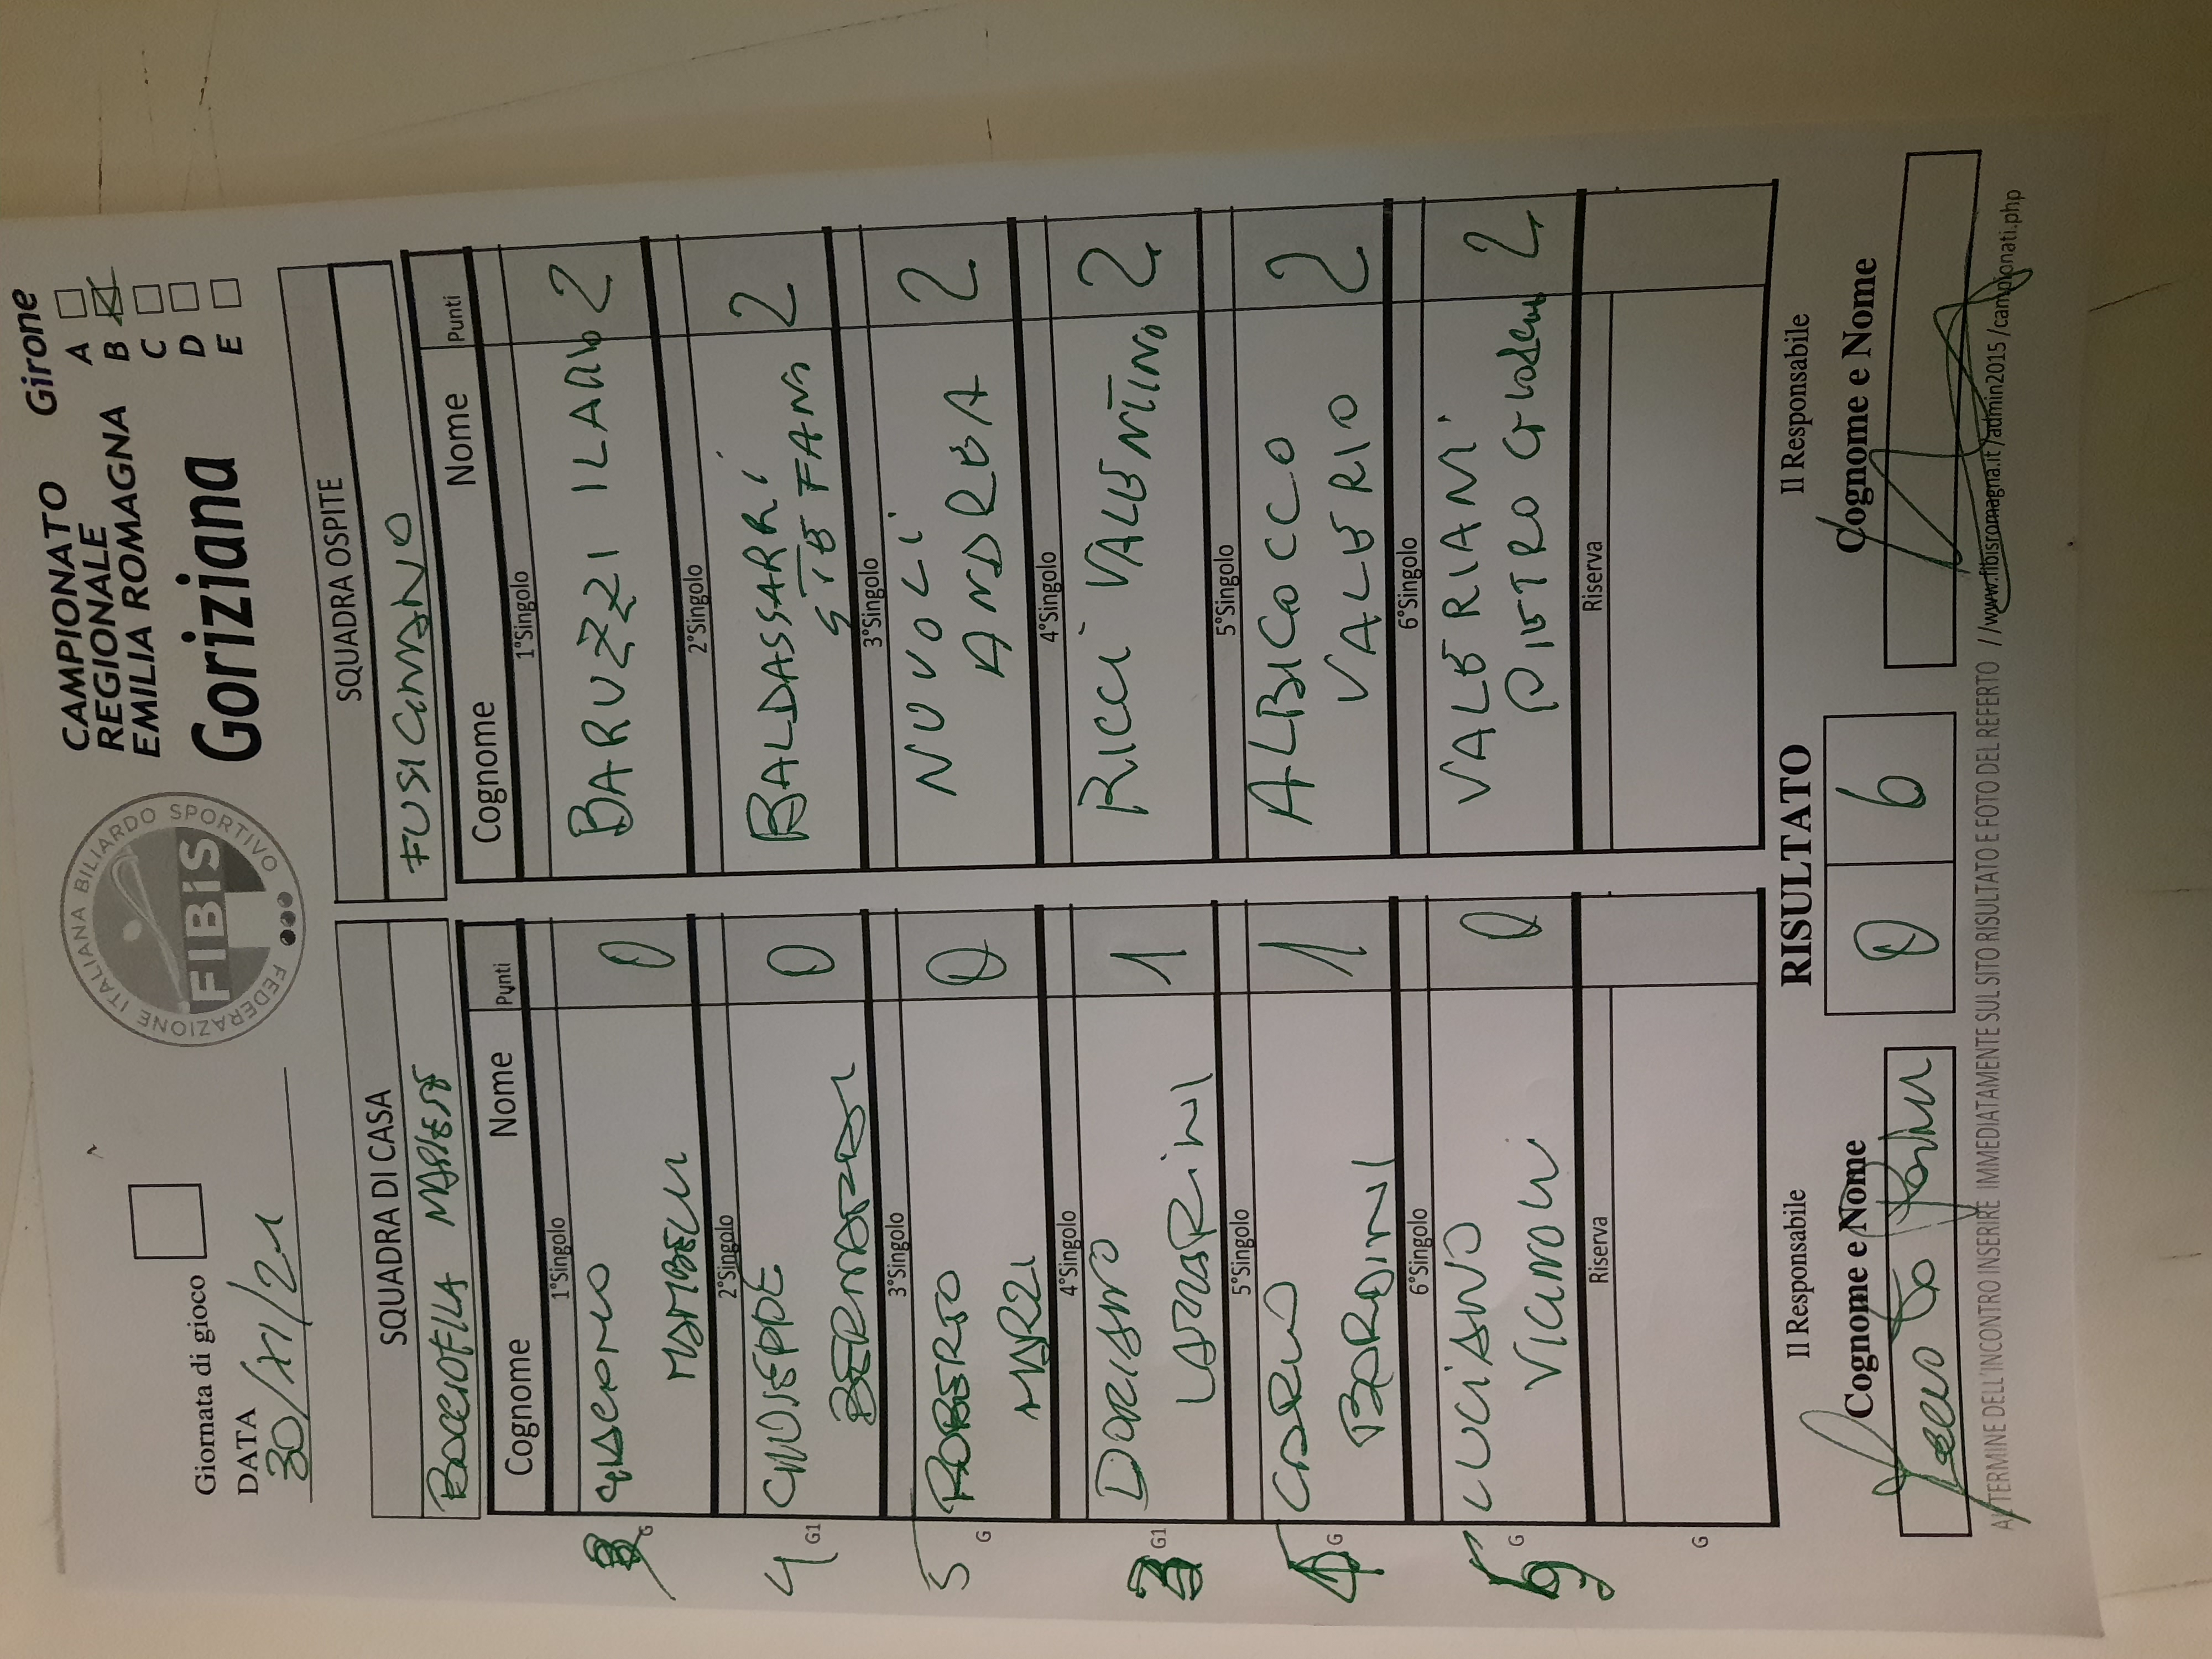 Giornata di gioco
DATA
30/XI/21
FEDERAZIONE ITALIANA BILIARDO SPORTIVO
FIBiS
CAMPIONATO
REGIONALE
EMILIA ROMAGNA
Goriziana
Girone
A
B
C
D
E
SQUADRA DI CASA
BOCCIOFILA
Cognome Nome Punti
1°Singolo
GIACOMO
MAMBELLI 0
G
2°Singolo
GIUSEPPE
0
4 G1
3°Singolo
ROBERTO
MARZI 0
5 G
4°Singolo
DORIANO
LAZZARINI 1
G1
5°Singolo
CARLO
BARDINI 1
G
6°Singolo
LUCIANO
0
G
Riserva
G
SQUADRA OSPITE
FUSIGNANO
Cognome Nome Punti
1°Singolo
BARUZZI ILARIO 2
2°Singolo
BALDASSARRI
STEFANO 2
3°Singolo
NUVOLI
ANDREA 2
4°Singolo
RICCI VALENTINO 2
5°Singolo
ALBICOCCO
VALERIO 2
6°Singolo
VALERIANI
PIETRO 2
Riserva
Il Responsabile
Cognome e Nome
RISULTATO
0 6
Il Responsabile
Cognome e Nome
AL TERMINE DELL'INCONTRO INSERIRE IMMEDIATAMENTE SUL SITO RISULTATO E FOTO DEL REFERTO //www.fibisromagna.it/admin2015/campionati.php